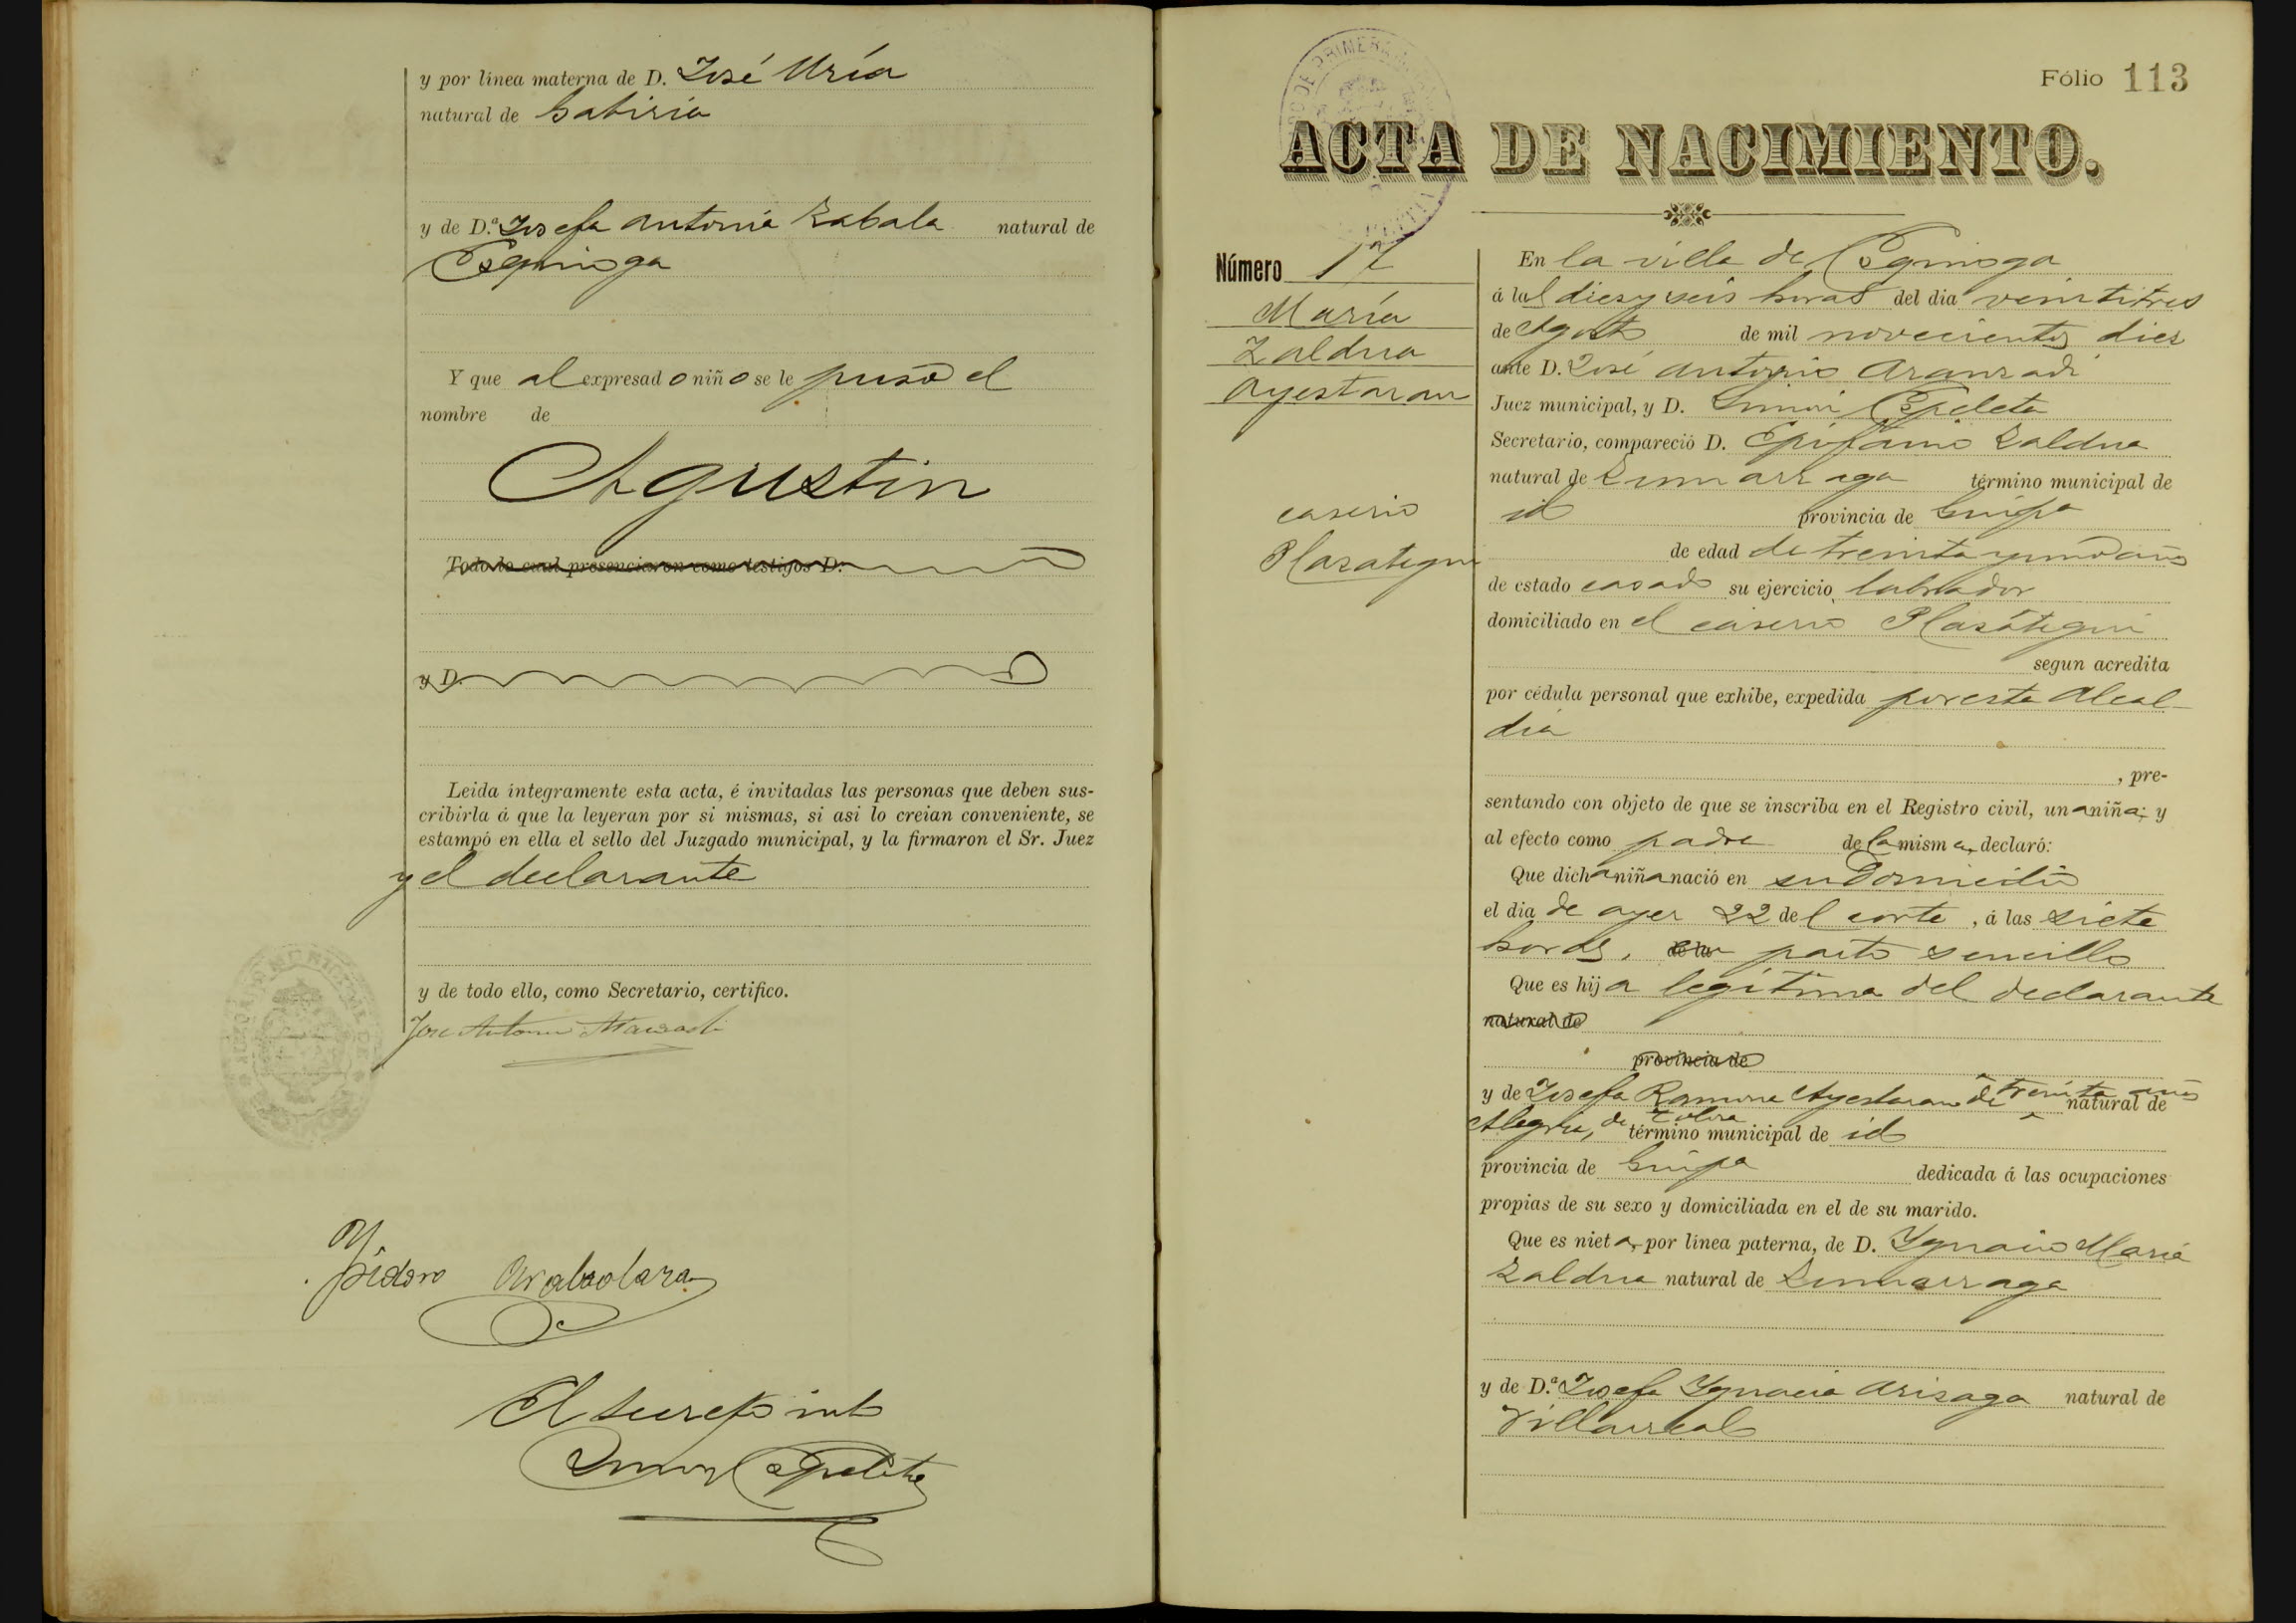 y por línea materna de D. José Uría
natural de Gabiria
y de D.ª Josefa Antonia Zabala natural de
Esquioga
Y que al expresado niño se le puso el
nombre de
Agustin
Todo lo cual presenciaron como testigos D.
y D.
Leida íntegramente esta acta, é invitadas las personas que deben sus-
cribirla á que la leyeran por si mismas, si asi lo creian conveniente, se
estampó en ella el sello del Juzgado municipal, y la firmaron el Sr. Juez
y el declarante
y de todo ello, como Secretario, certifico.
Jose Antonio Aranzadi
Ysidoro Arabaolaza
El Secretº intº
Simon Espeleta
Fólio 113
ACTA DE NACIMIENTO.
Número 17
María
Zaldua
Ayestaran
caserio
Plazategui
En la villa de Esquioga
á las diez y seis horas del dia veintitres
de Agosto de mil novecientos diez
ante D. José Antonio Aranzadi
Juez municipal, y D. Simon Espeleta
Secretario, compareció D. Epifanio Zaldua
natural de Zumarraga término municipal de
id provincia de Guipa
de edad de treinta y uno años
de estado casado su ejercicio labrador
domiciliado en el caserio Plazátegui
segun acredita
por cédula personal que exhibe, expedida por esta Alcal-
dia
, pre-
sentando con objeto de que se inscriba en el Registro civil, una niña; y
al efecto como padre de la misma, declaró:
Que dicha niña nació en su domicilio
el dia de ayer 22 del corte, á las siete
horas, de la parto sencillo
Que es hija legítima del declarante
natural de
provincia de
y de Josefa Ramona Ayestaran de treinta años natural de
Alegria, de Tolosa término municipal de id
provincia de Guipa dedicada á las ocupaciones
propias de su sexo y domiciliada en el de su marido.
Que es nieta, por línea paterna, de D. Ygnacio María
Zaldua natural de Zumarraga
y de D.ª Josefa Ygnacia Arizaga natural de
Villarreal